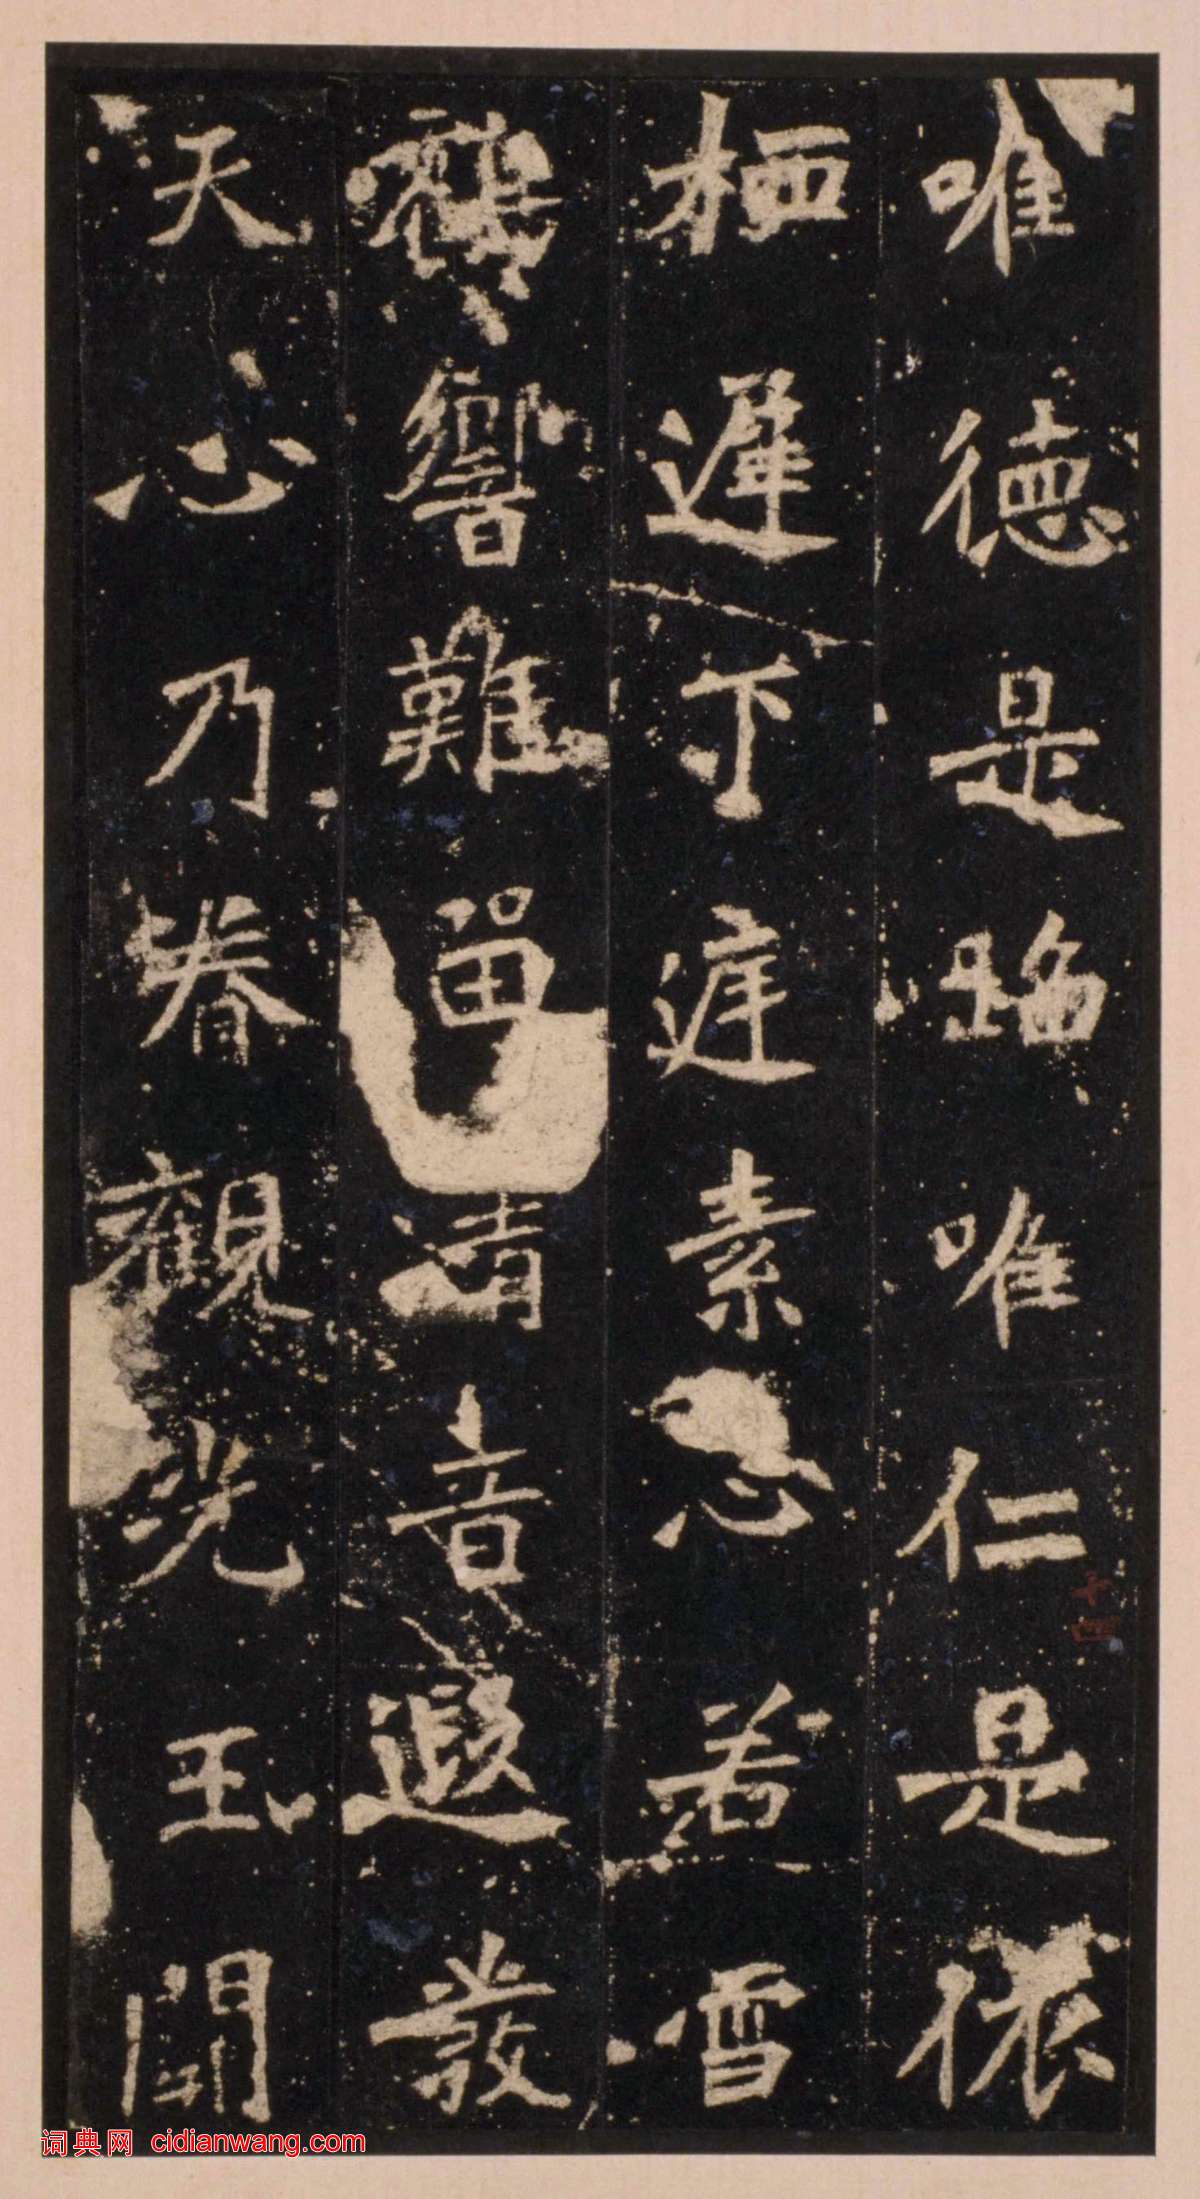 唯德是蹈唯仁是依
栖遲下庭素心若雪
鶴響難留清音遐發
天心乃眷觀光王闕
十四
词典网 cidianwang.com